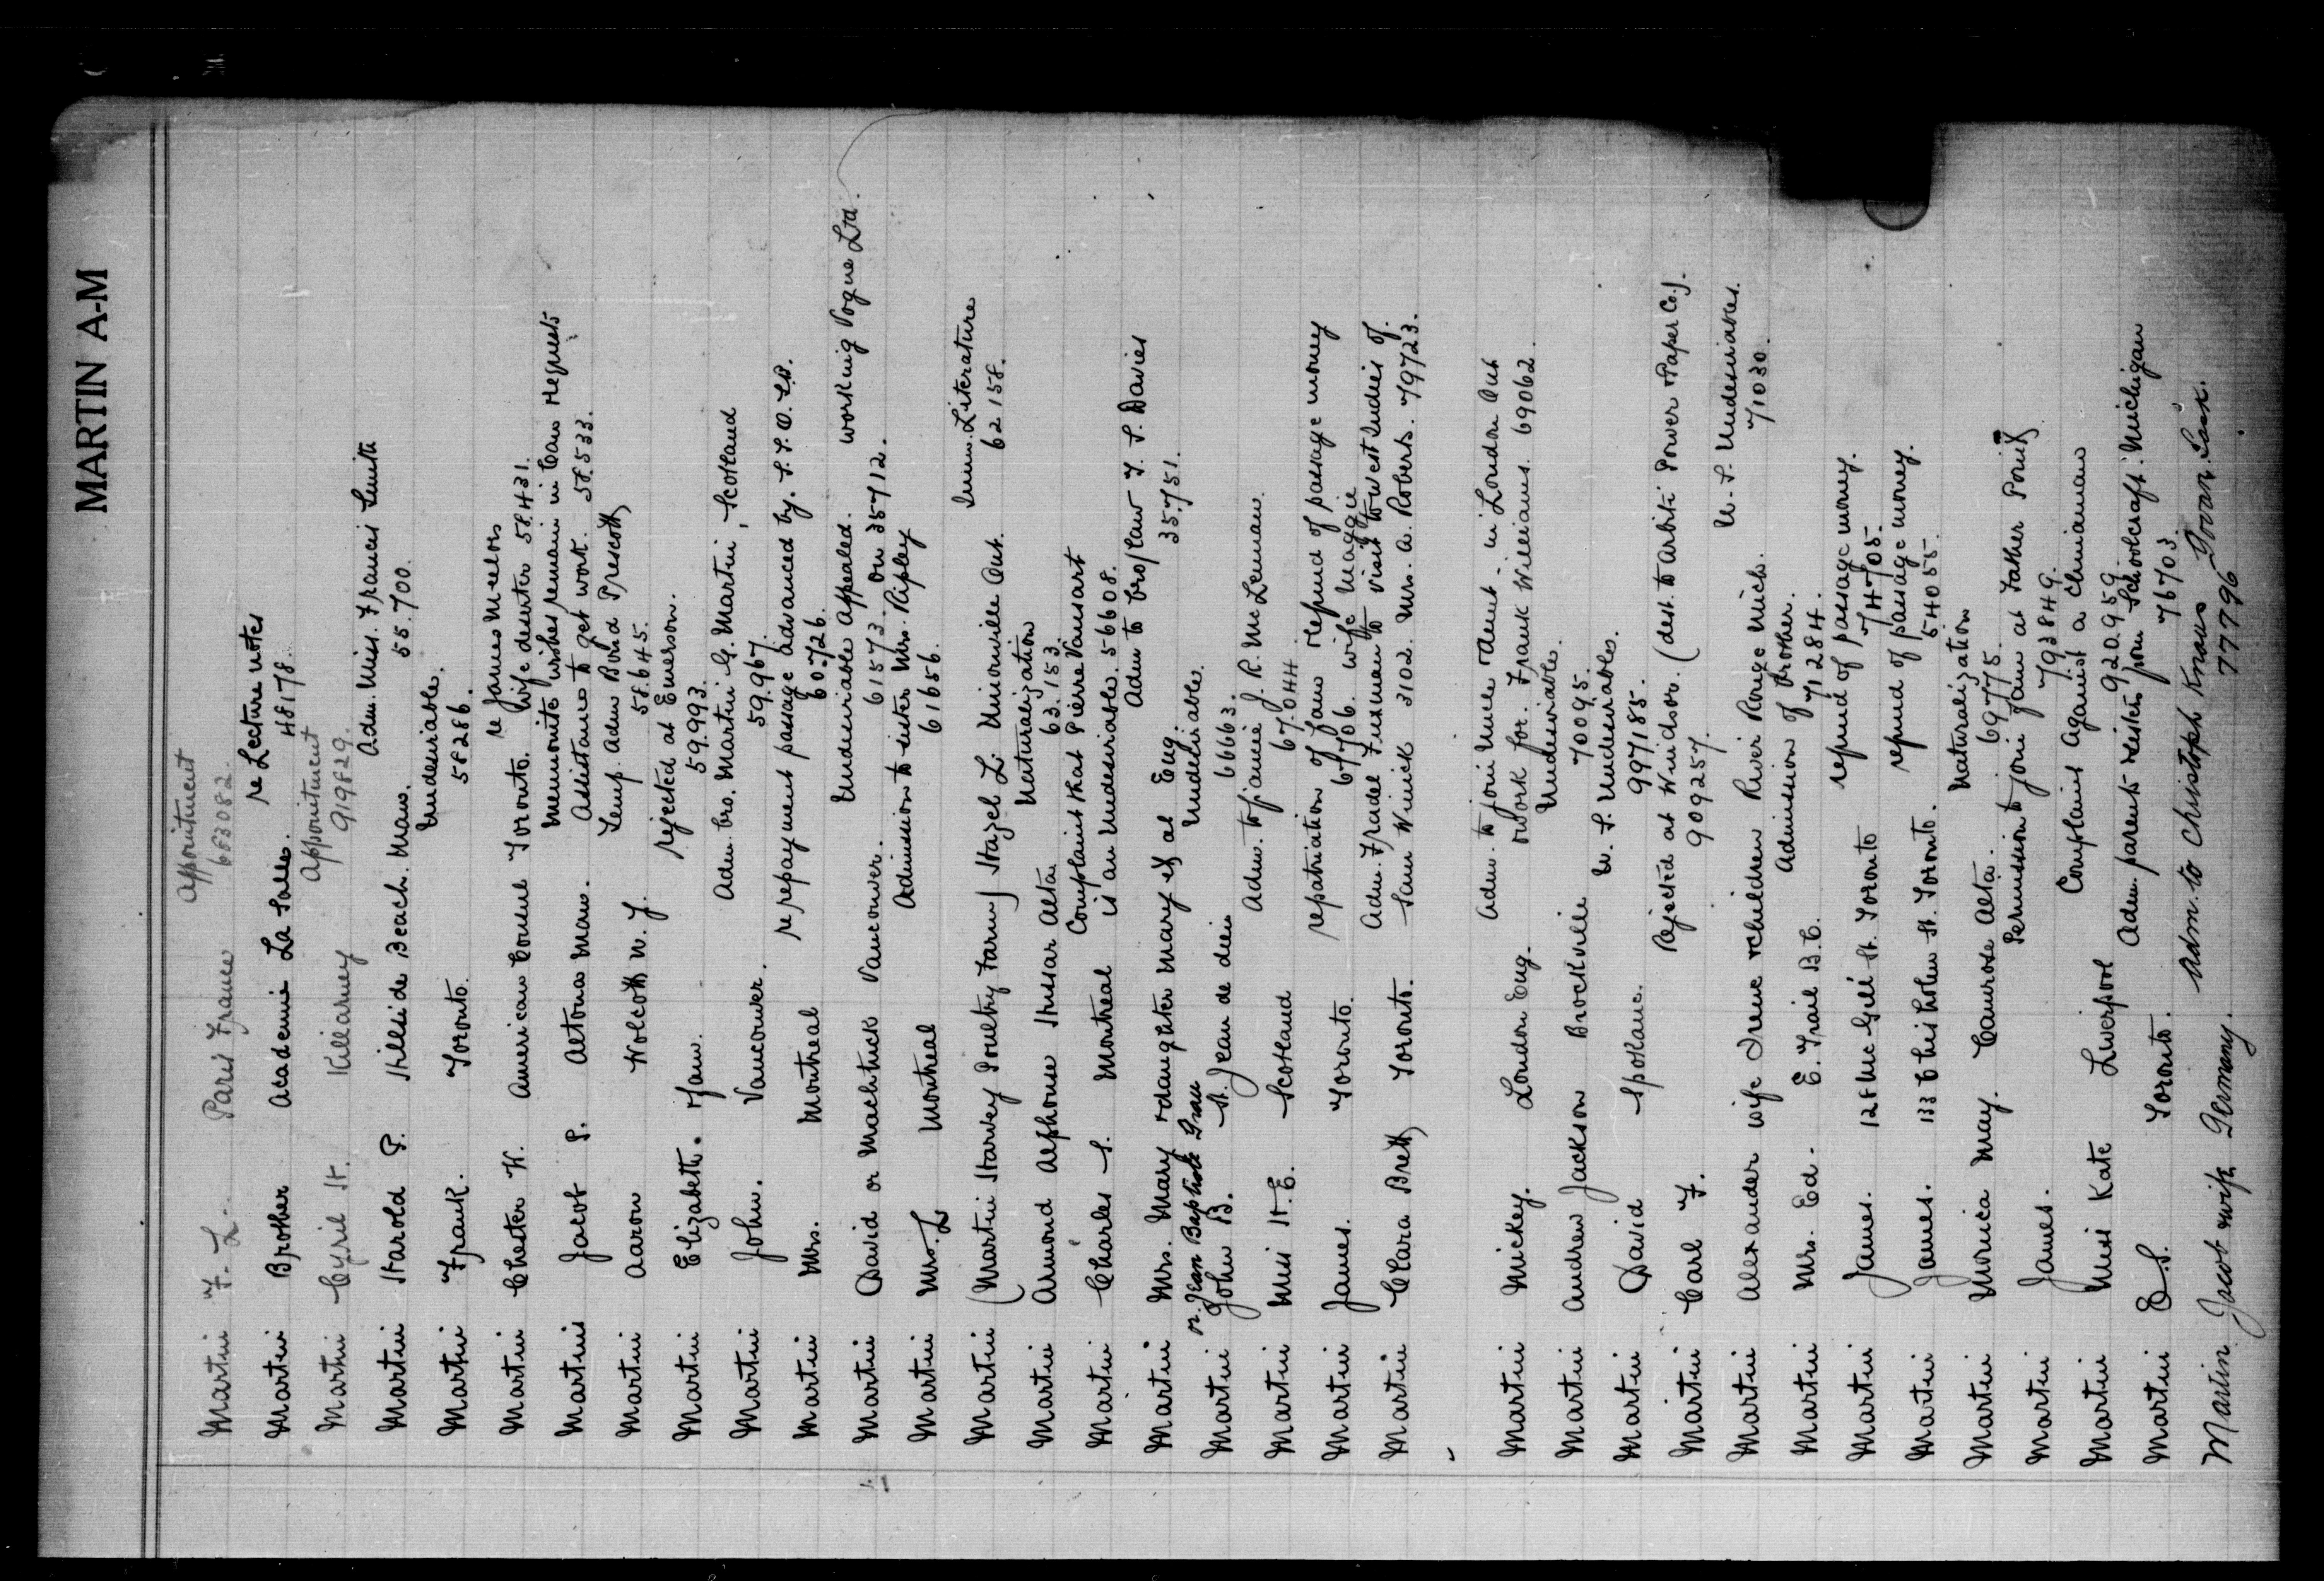 MARTIN A-M
Martin F. L. Paris France Appointment
653082.
Martin Brother Academie La Salle. re Lecture notes
48178.
Martin Cyril H. Killarney Appointment
919829.
Martin Harold P. Hillside Beach. Man. Adm. Miss. Francis Smith
55.700.
Martin Frank. Toronto. Undesirable.
58286.
re James Meelos
Martin Chester W. American Consul Toronto. Wife deserter 58431.
Mennonite wishes remain in Can Requests
Martin Jacob P. Altona Man. Assistance to get work. 58.533.
Martin Aaron Wolcott N.Y. Temp. Adm Bond Prescott
58.645.
Martin Elizabeth. Man. rejected at Emerson.
59.993.
Martin John. Vancouver. Adm. bro. Martin G. Martin, Scotland
59.967.
Martin Mrs. Montreal re repayment passage advanced by
60.726.
Martin David or Machtuck Vancouver. Undesirable Appealed. working Vogue Ltd.
61573. On 35712.
Martin Mrs. L Montreal Admission to sister Mrs. Ripley
61656.
Martin (Martin Harvey Poultry Farm) Hazel L. Unionville Ont. Imm. Literature
62158.
Martin Armond Alphonse Hussar Alta. Naturalization
63.153.
Martin Charles S. Montreal Complaint that Pierre Vansart
is an Undesirable. 56608.
Martin Mrs. Mary + daughter Mary at Eng. Adm to bro/law T. S. Davies
35.751.
or Jean Baptiste
Martin John B. St. Jean de dieu Undesirable.
66663.
Martin Miss H. E. Scotland Adm. to fiancé J. R. McLennan.
67.044.
Martin James. Toronto. repatriation of fam refund of passage money
67706. wife Maggie
Martin Clara Brett Toronto. Adm. Fradel Fuxman to visit to West Indies of.
Sam Winick 3102. Mrs. A. Roberts. 79723.
Martin Mickey. London Eng. Adm. to join Uncle Aunt in London Ont
+ work for. Frank Williams. 69062.
Martin Andrew Jackson Brockville Undesirable.
70095.
Martin David Spokane. U. S. Undesirables.
997185.
Martin Carl F. Rejected at Windsor. (dest. to Arbiti Power + Paper Co.).
909257.
Martin Alexander wife Irene + children River Rouge Mich. U. S. Undesirables.
71030.
Martin Mrs. Ed. E. Trail B.C. Admission of brother.
71284.
Martin James. 128 McGill St. Toronto refund of passage money.
74705.
Martin James. 133 Chisholm St. Toronto. refund of passage money.
54055.
Martin Monica May. Camrose Alta. Naturalization
69775.
Martin James. Permission to join fam at Father Point
793849.
Martin Miss Kate Liverpool Complaint Against a Chinaman
920959
Martin D. S. Toronto. Adm. parents + sister from Schoolcraft. Michigan
76703.
Martin Jacob + wife Germany. Adm. to Christoph Knaus Govan. Sask.
77796